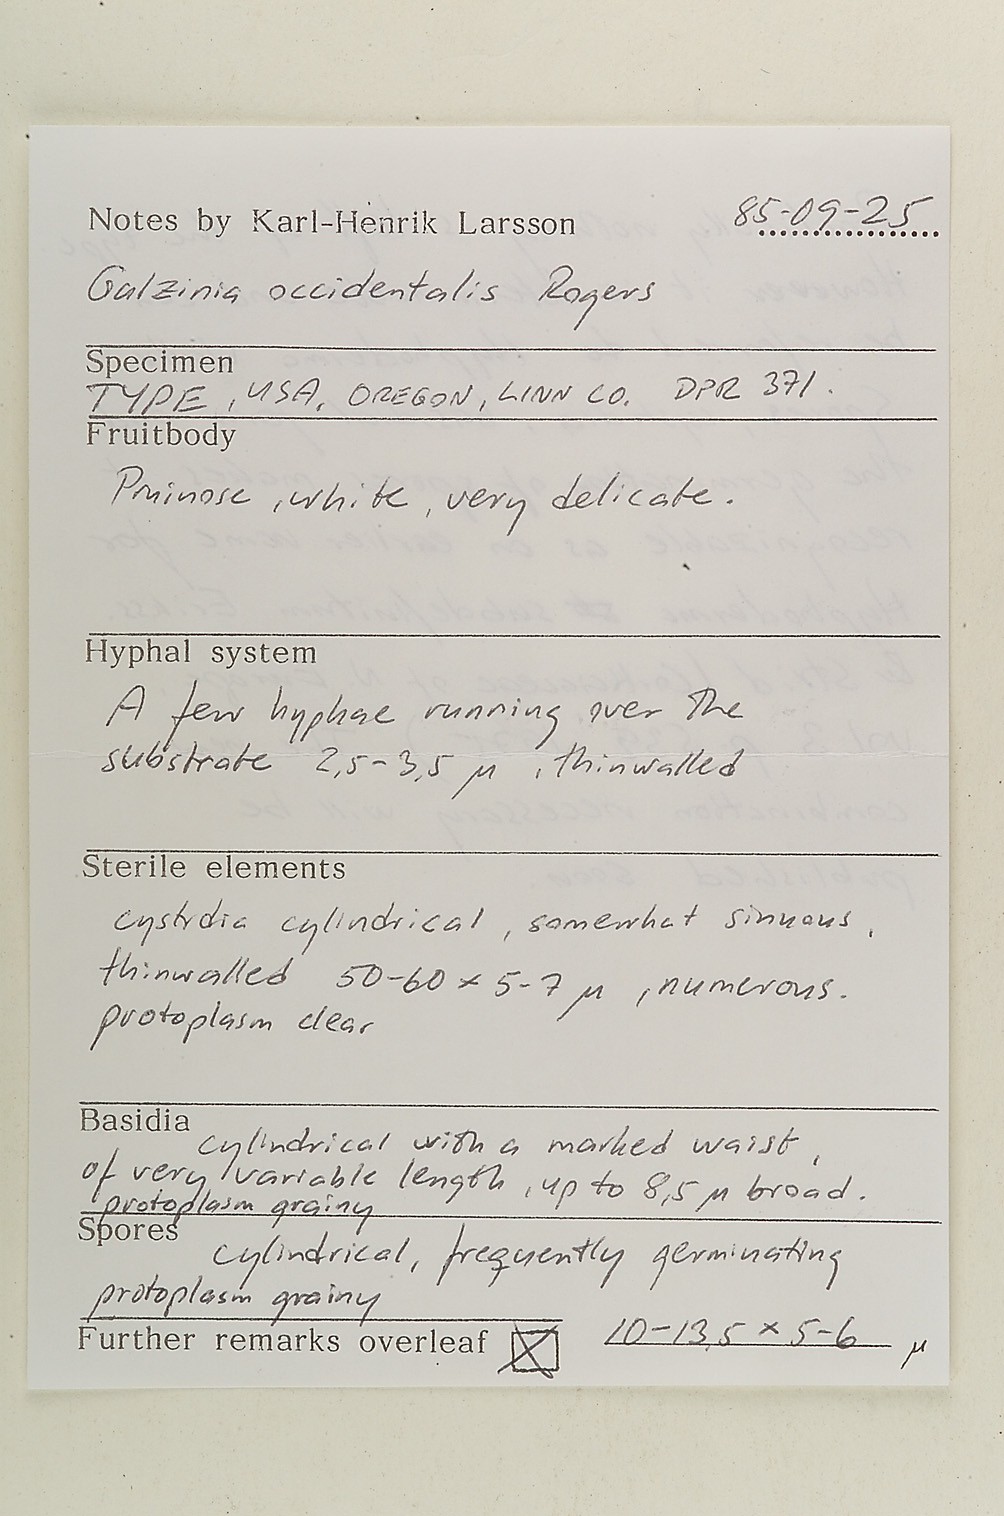 Notes by Karl-Henrik Larsson 85-09-25
Galzinia occidentalis Rogers
Specimen
TYPE, USA, OREGON, LINN CO. DPR 371.
Fruitbody
Pruinose, white, very delicate.
Hyphal system
A few hyphae running over the
substrate 2,5-3,5 µ, thinwalled
Sterile elements
cystidia cylindrical, somewhat sinuous,
thinwalled 50-60 × 5-7 µ, numerous.
protoplasm clear
Basidia
cylindrical with a marked waist,
of very variable length, up to 8,5 µ broad.
protoplasm grainy
Spores
cylindrical, frequently germinating
protoplasm grainy
Further remarks overleaf ☒ 10-13,5 × 5-6 µ